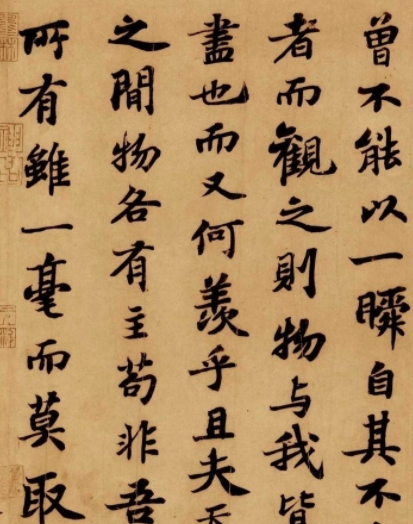 曾不能以一瞬自其不
者而觀之則物與我皆
盡也而又何羨乎且夫天
之間物各有主苟非吾
所有雖一毫而莫取